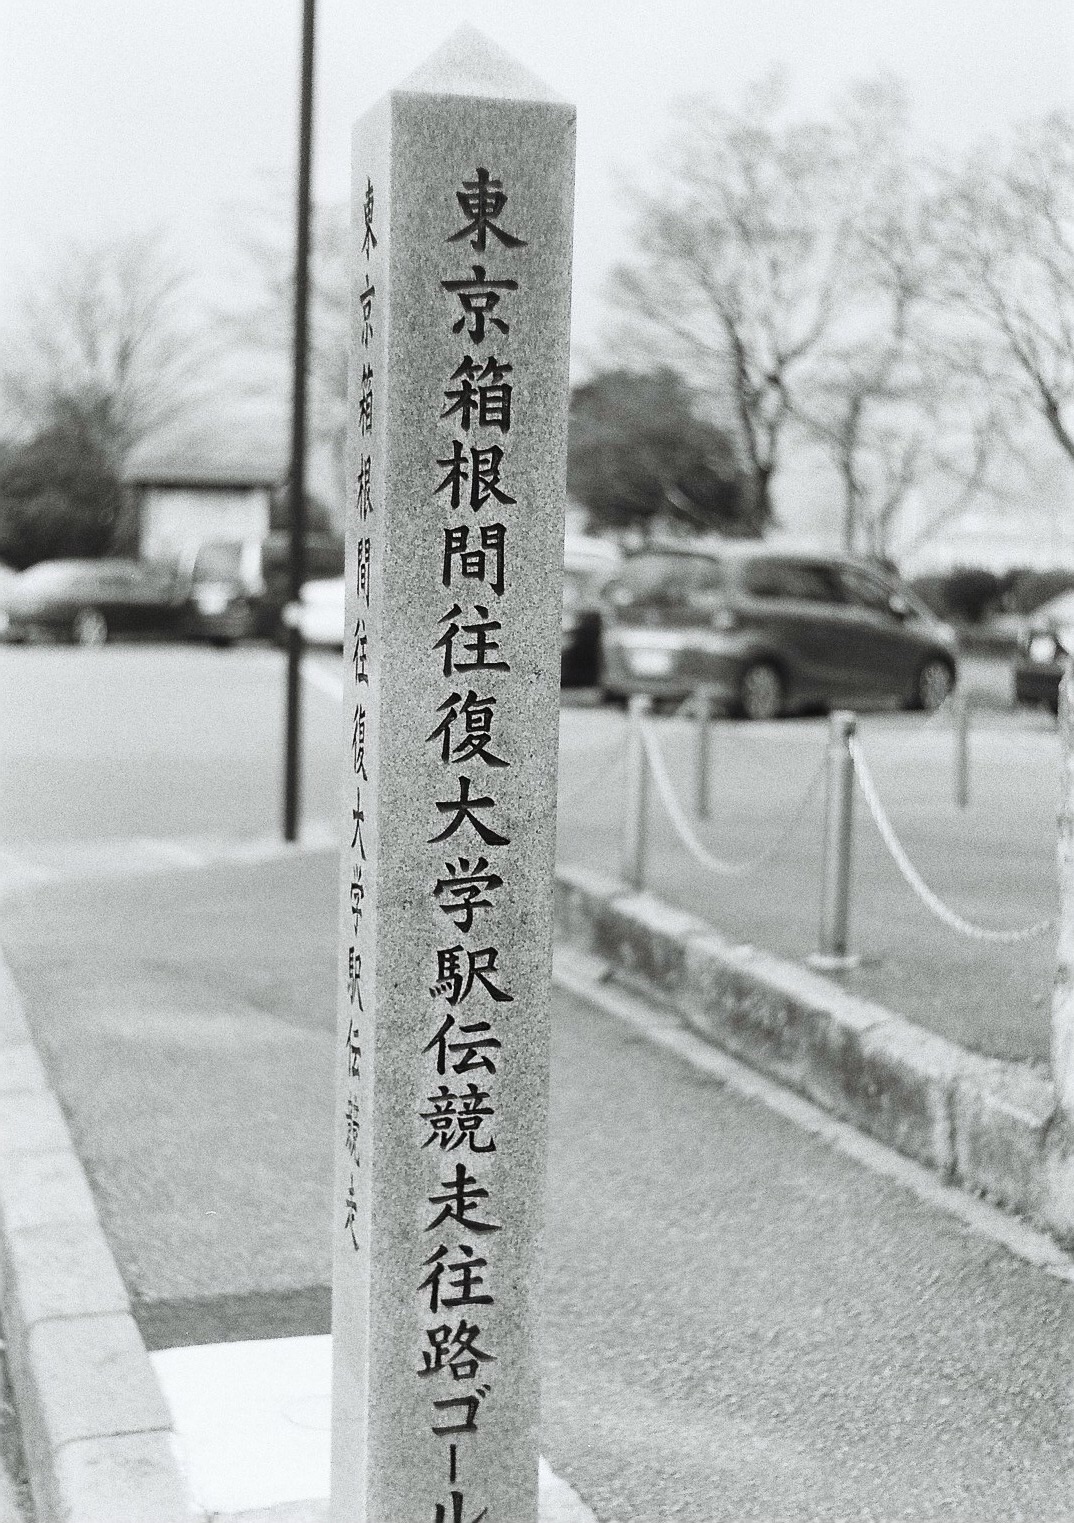 東京箱根間往復大学駅伝競走往路ゴール
東京箱根間往復大学駅伝競走